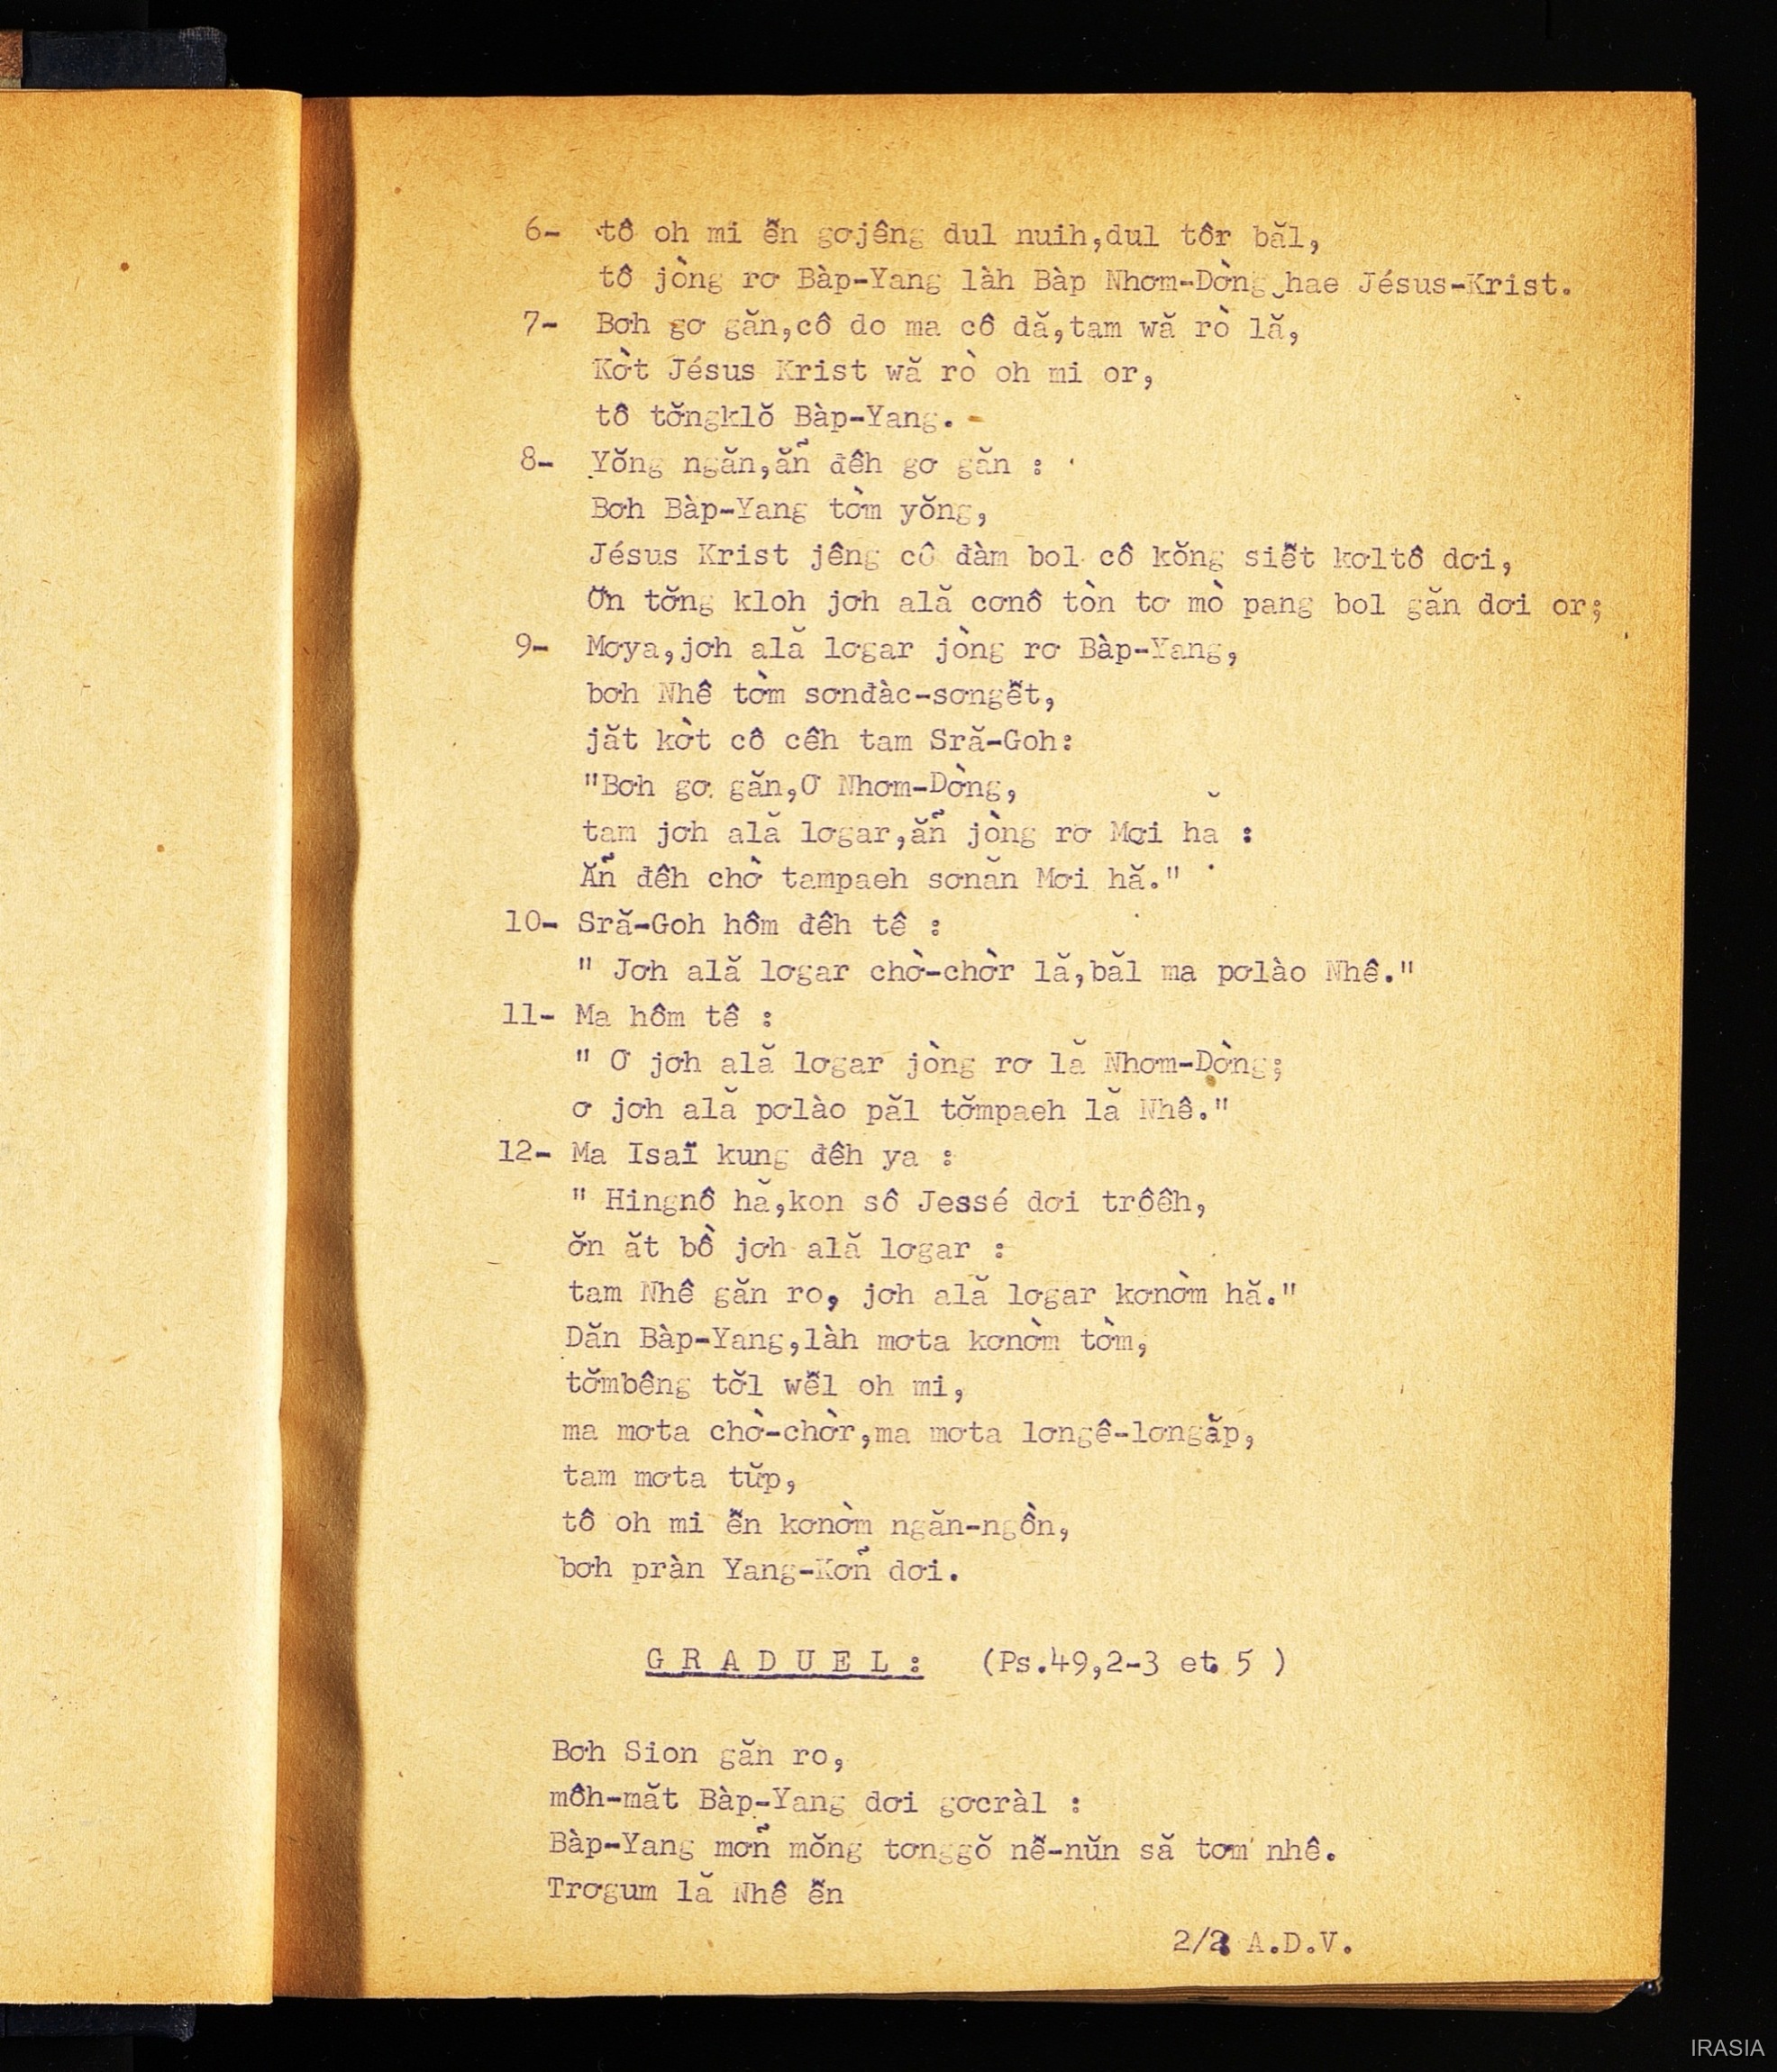 6- tô oh mi ê̆n gơjêng dul nuih,dul tôr băl,
tô jòng rơ Bàp-Yang làh Bàp Nhơm-Dờng hae Jésus-Krist.
7- Bơh gơ găn,cô do ma cô dă,tam wă rò lă,
Kờt Jésus Krist wă rò oh mi or,
tô tơ̆ngklŏ Bàp-Yang.
8- Yŏng ngăn,ăñ đêh gơ găn :
Bơh Bàp-Yang tờm yŏng,
Jésus Krist jêng cô đàm bol cô kŏng siê̆t kơltô dơi,
Ơ̆n tơ̆ng kloh jơh ală cơnô tòn tơ mò pang bol găn dơi or;
9- Mơya,jơh ală lơgar jòng rơ Bàp-Yang,
bơh Nhê tờm sơnđàc-sơngê̆t,
jăt kờt cô cêh tam Sră-Goh:
"Bơh gơ găn,Ơ Nhơm-Dờng,
tam jơh ală lơgar,ăñ jòng rơ Mơi hă :
Ăñ đêh chờ tampaeh sơnăn Mơi hă."
10- Sră-Goh hôm đêh tê :
" Jơh ală lơgar chờ-chờr lă,băl ma pơlào Nhê."
11- Ma hôm tê :
" Ơ jơh ală lơgar jòng rơ lă Nhơm-Dờng;
ơ jơh ală pơlào păl tơ̆mpaeh lă Nhê."
12- Ma Isaï kung đêh ya :
" Hingnô hă,kon sô Jessé dơi trôêh,
ơ̆n ăt bồ jơh ală lơgar :
tam Nhê găn ro, jơh ală lơgar kơnờm hă."
Dăn Bàp-Yang,làh mơta kơnờm tờm,
tơ̆mbêng tơ̆l wê̆l oh mi,
ma mơta chờ-chờr,ma mơta lơngê-lơngăp,
tam mơta tŭp,
tô oh mi ê̆n kơnờm ngăn-ngồn,
bơh pràn Yang-Kơñ dơi.
G R A D U E L : (Ps.49,2-3 et 5 )
Bơh Sion găn ro,
môh-măt Bàp-Yang dơi gơcràl :
Bàp-Yang mơñ mŏng tơnggŏ nê̆-nŭn să tơm nhê.
Trơgum lă Nhê ê̆n
2/2 A.D.V.
IRASIA